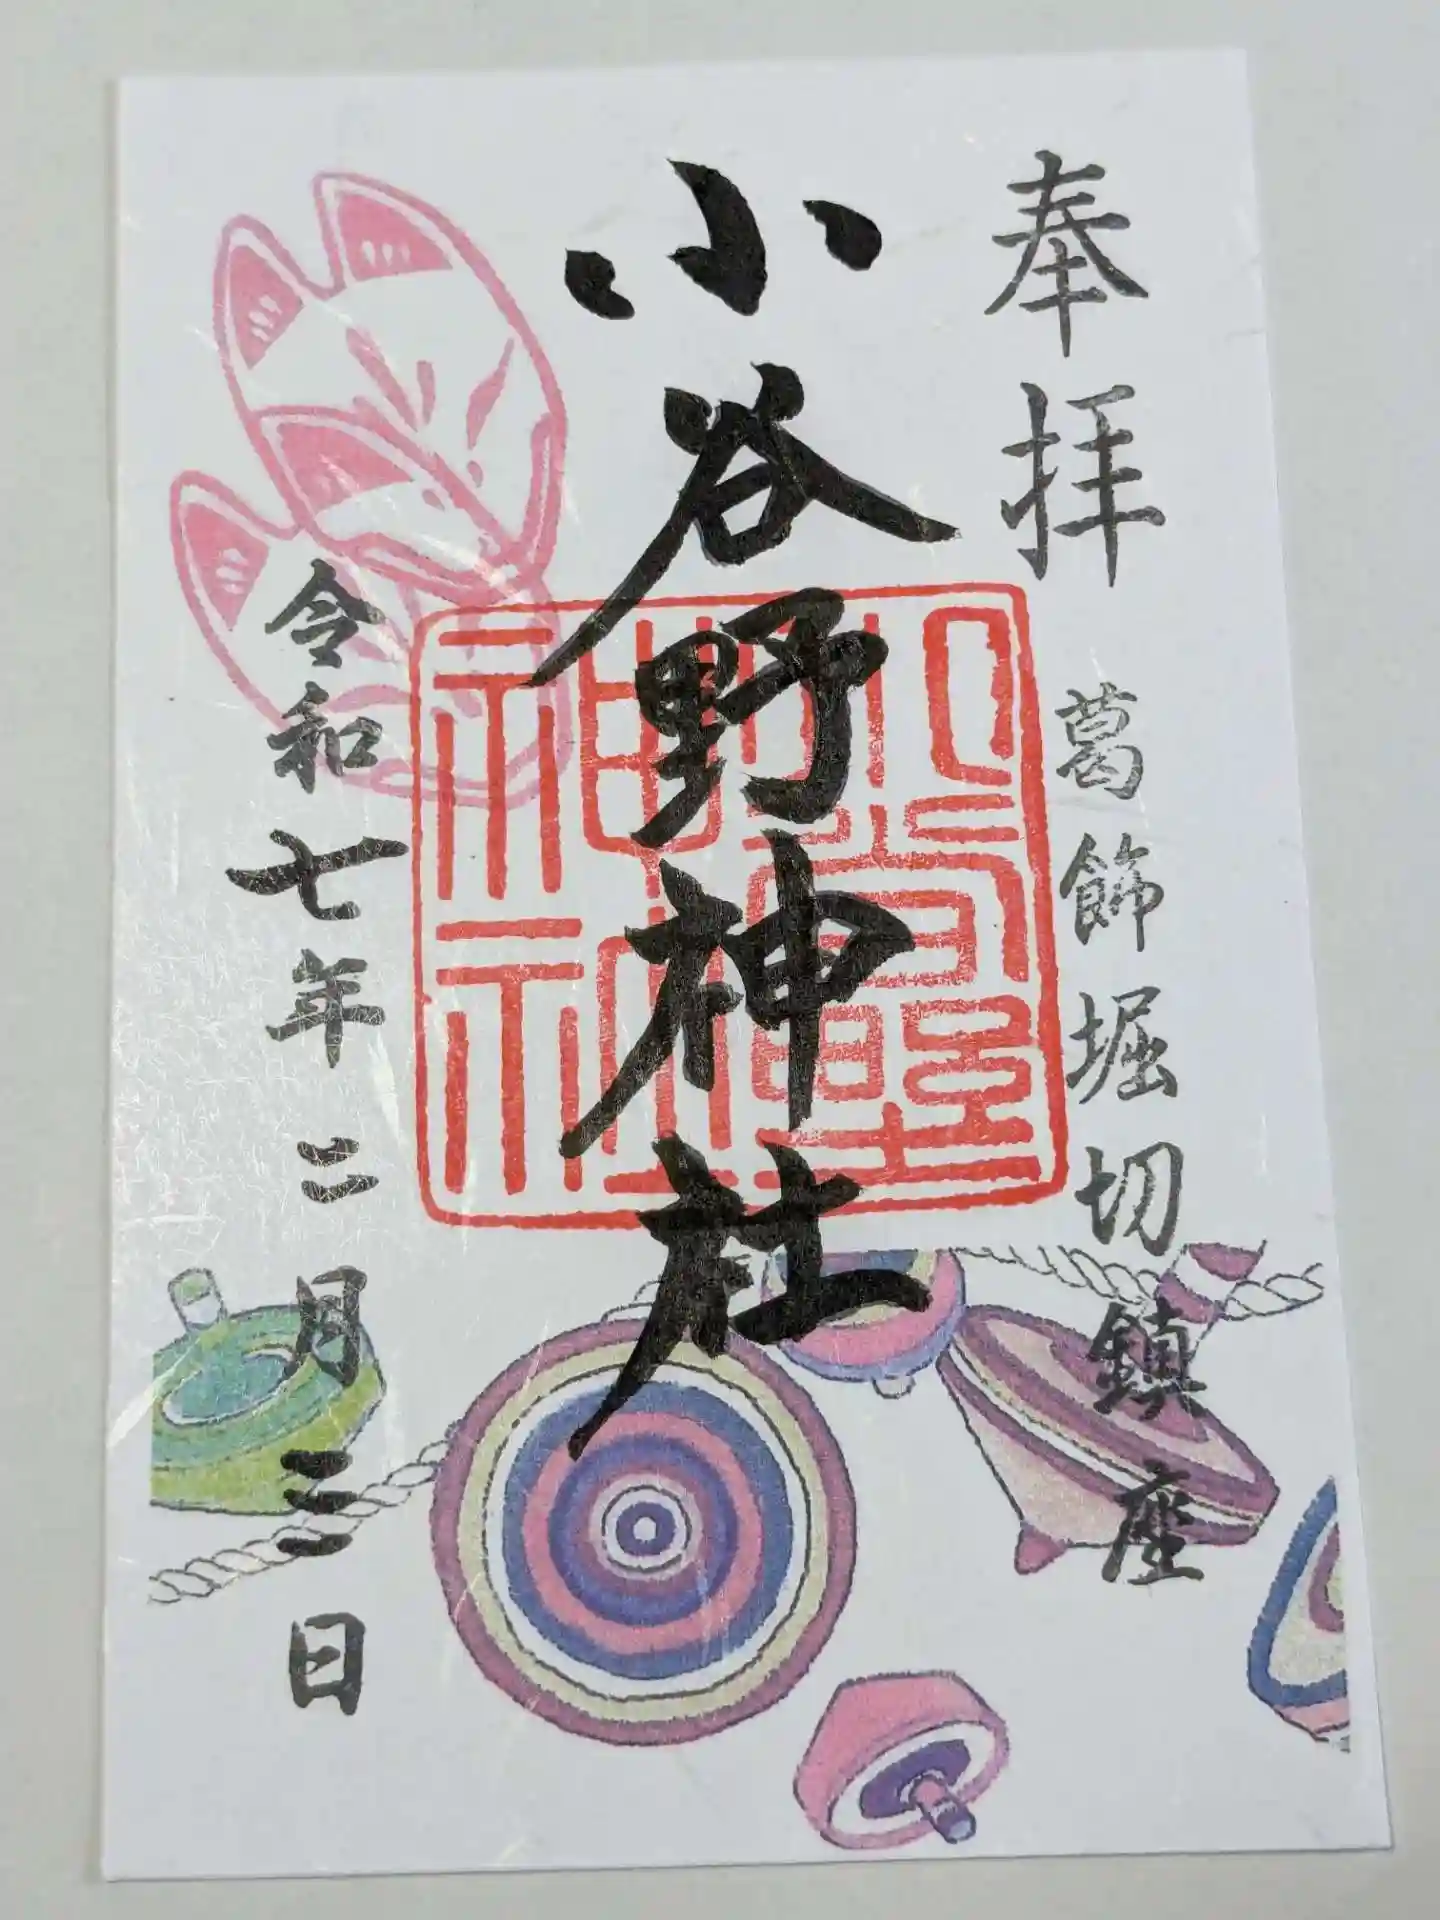 奉拝 葛飾堀切鎮座
小谷野神社
令和七年二月三日